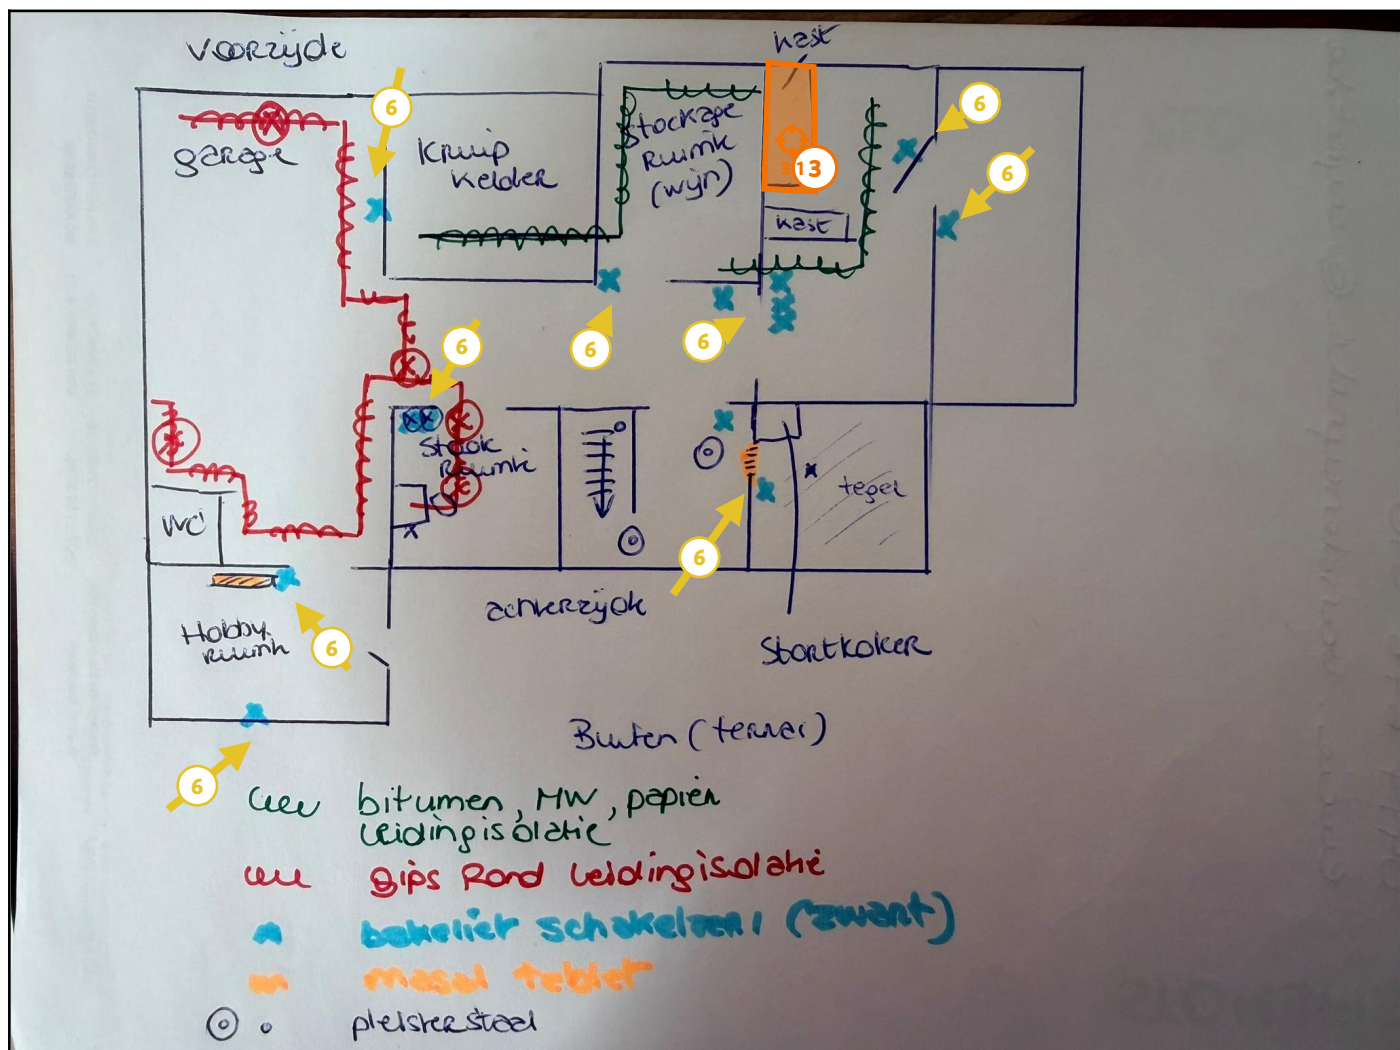 voorzijde
kast
garage
Kruip
kelder
Stockage
Ruimte
(wijn)
6
6
6
313
kast
6
6
6
Stook
Ruimte
tegel
WC
6
6
achterzijde
Hobby
ruimte
Stortkoker
Buiten (terras)
6
bitumen, MW, papier
leidingisolatie
gips Rond leidingisolatie
bakeliet schakelaar (zwart)
masal tablet
pleisterstaal